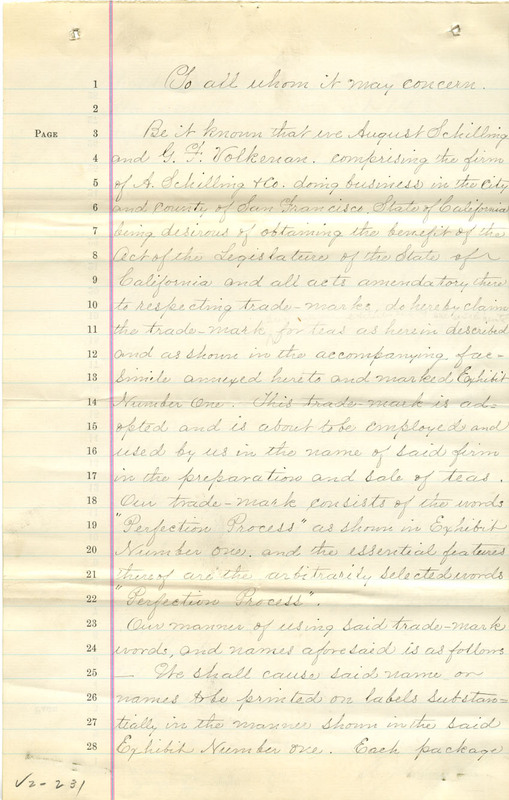 1 To all whom it may concern.
2
PAGE 3 Be it known that we August Schilling
4 and G. F. Volkman. comprising the firm
5 of A. Schilling & Co. doing business in the City
6 and County of San Francisco, State of California
7 being desirous of obtaining the benefit of the
8 Act of the Legislature of the State of
9 California and all acts amendatory there
10 to respecting trade-marks, do hereby claim
11 the trade-mark for teas as herein described
12 and as shown in the accompanying fac-
13 simile annexed hereto and marked Exhibit
14 Number One. This trade-mark is ad-
15 opted and is about to be employed and
16 used by us in the name of said firm
17 in the preparation and sale of teas.
18 Our trade-mark consists of the words
19 "Perfection Process" as shown in Exhibit
20 Number one. and the essential features
21 thereof are the arbitrarily selected words
22 "Perfection Process".
23 Our manner of using said trade-mark
24 words, and names aforesaid is as follows
25 — We shall cause said name or
26 names to be printed on labels substan=
27 tially in the manner shown in the said
28 Exhibit Number one. Each package
V2-231